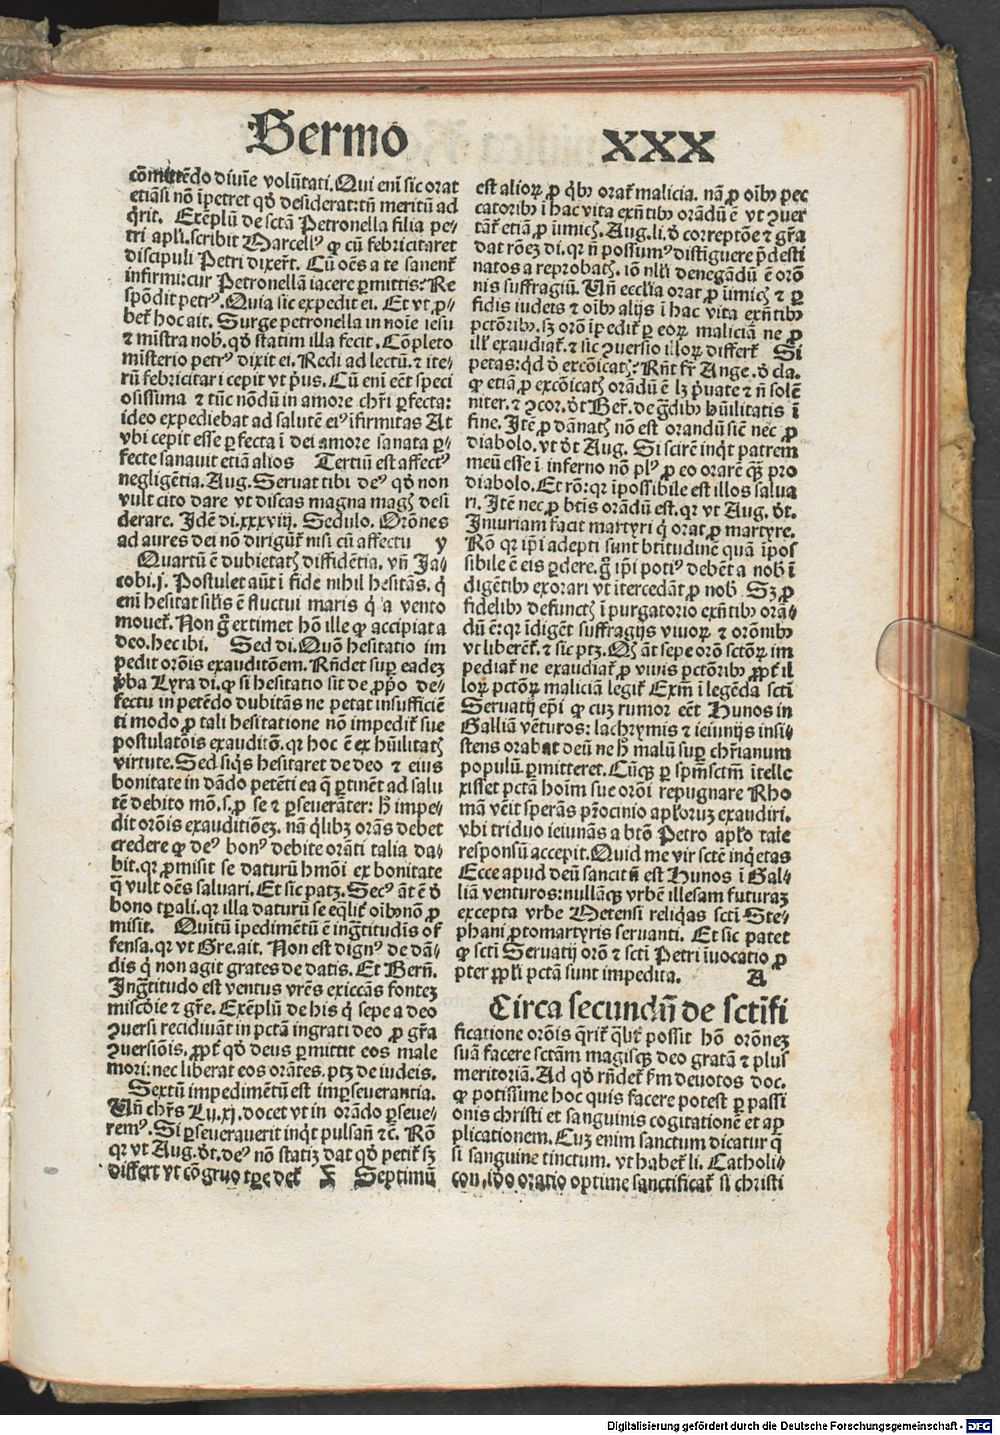 Sermo XXX
cōmittēdo diuīe volūtati. Qui enī sic orat
etiāsi nō īpetret qđ desiderat: tñ meritū ad
q̄rit. Exēplū de sctā Petronella filia pe⸗
tri apłi. scribit Marcellꝰ ꝙ cū febricitaret
discipuli Petri dixert̄. Cū oēs a te sanent̄
infirmi: cur Petronellā iacere ꝑmittis: Re
spōdit petrꝰ. Quia sic expedit ei. Et vt ꝓ⸗
bet̄ hoc ait. Surge petronella in noīe iesu
⁊ mīstra nob. qđ statim illa fecit. Cōpleto
misterio petrꝰ dixit ei. Redi ad lectū. ⁊ ite⸗
rū febricitari cepit vt p̄us. Cū enī eēt speci
osissima ⁊ tūc nōdū in amore chr̄i ꝑfecta:
ideo expediebat ad salutē eiꝰ īfirmitas At
vbi cepit esse ꝑfecta ī dei amore sanata ꝑ⸗
fecte sanauit etiā alios Tertiū est affectꝰ
negligētia. Aug. Seruat tibi deꝰ qđ non
vult cito dare vt discas magna magꝭ desi
derare. Idē di. xxxviij. Sedulo. Orōnes
ad aures dei nō dirigūt̄ nisi cū affectu y
Quartū ē dubietatꝭ diffidētia. vñ Ja⸗
cobi. j. Postulet aūt ī fide nihil hesitās. q̄
enī hesitat silīs ē fluctui maris q̄ a vento
mouet̄. Non ḡ extimet hō ille ꝙ accipiat a
deo. hec ibi. Sed di. Quō hesitatio im
pedit orōis exauditōem. Rñdet suꝑ eadeꝫ
ꝟba Lyra di. ꝙ si hesitatio sit de ꝓpō de⸗
fectu in petēdo dubitās ne petat insufficiē
ti modo ꝓ tali hesitatione nō impedit̄ sue
postulatōis exauditō. qr hoc ē ex hūilitatꝭ
virtute. Sed siq̄s hesitaret de deo ⁊ eius
bonitate in dādo petēti ea q̄ ꝑtinēt ad salu
tē debito mō. s. ꝓ se ⁊ ꝑseuerāter: h̄ impe⸗
dit orōis exauditiōeꝫ. nā q̄libꝫ orās debet
credere ꝙ deꝰ bonꝰ debite orāti talia da⸗
bit. qr ꝓmisit se daturū hmōi ex bonitate
q̄ vult oēs saluari. Et sic patꝫ. Secꝰ āt ē đ
bono tꝑali. qr illa daturū se eq̄lit̄ oībꝰ nō ꝓ
misit. Quītū īpedimētū ē ingr̄titudis of
fensa. qr vt Gre. ait. Non est dignꝰ de dā⸗
dis q̄ non agit grates de datis. Et Berñ.
Ingr̄titudo est ventus vrēs exiccās fonteꝫ
miscđie ⁊ gr̄e. Exēplū de his q̄ sepe a deo
ꝯuersi recidiuāt in pctā ingrati deo ꝓ gr̄a
ꝯuersiōis. ꝓpt̄ qđ deus ꝑmittit eos male
mori: nec liberat eos orātes. ptꝫ de iudeis.
Sextū impedimētū est imꝑseuerantia.
Vñ chr̄s Lu. xj. docet vt in orādo ꝑseue⸗
remꝰ. Si ꝑseuerauerit inq̄t pulsañ ⁊c̄. Rō
qr vt Aug. đt. deꝰ nō statiꝫ dat qđ petit̄ sꝫ
differt vt cōgruo tꝑe det̄ z Septimū
est alioꝝ ꝓ q̄bꝰ orat̄ malicia. nā ꝓ oībꝰ pec
catoribꝰ ī hac vita exñtibꝰ orādū ē vt ꝯuer
tāt̄ etiā ꝓ inimicꝭ. Aug. li. đ correptōe ⁊ gr̄a
dat rōeꝫ di. qr ñ possumꝰ distiguere p̄desti
natos a reprobatꝭ. iō nłłi denegādū ē orō
nis suffragiū. Vñ ecclīa orat ꝓ inimicꝭ ⁊ ꝓ
fidis iudeis ⁊ oībꝰ alijs ī hac vita exñtibꝰ
pctōribꝰ. sꝫ orō īpedit̄ ꝑ eoꝝ maliciā ne ꝓ
ill̄ exaudiat̄. ⁊ sic ꝯuersio illoꝝ differt̄ Si
petas: qd đ excōicatꝭ: Rñt fr̄ Ange. đ cla.
ꝙ etiā ꝓ excōicatꝭ orādū ē lꝫ p̄uate ⁊ ñ solē
niter. ⁊ ꝯcor. đt Ber̄. de gr̄dibꝰ hūilitatis ī
fine. Itē ꝓ dānatꝭ nō est orandū sic̄ nec ꝓ
diabolo. vt đt Aug. Si scirē inq̄t patrem
meū esse ī inferno nō plꝰ ꝓ eo orarē q̄ꝫ pro
diabolo. Et rō: qr īpossibile est illos salua
ri. Itē nec ꝓ btīs orādū est. qr vt Aug. đt.
Iniuriam facit martyri q̄ orat ꝓ martyre.
Rō qr ip̄i adepti sunt btītudinē quā īpos
sibile ē eis ꝑdere. ḡ ip̄i potiꝰ debēt a nobꝭ ī
digētibꝰ exorari vt ītercedāt ꝓ nobꝭ Sꝫ ꝓ
fidelibꝰ defunctꝭ ī purgatorio exñtibꝰ orā⸗
dū ē: qr īdigēt suffragijs viuoꝝ ⁊ orōnibꝰ
vt liberēt̄. ⁊ sic ptꝫ. Qꝫ āt sepe orō sctōꝝ im
pediat̄ ne exaudiat̄ ꝓ viuis pctōribꝰ ꝓpt̄ il
loꝝ pctōꝝ maliciā legit̄ Exm̄ ī legēda scti
Seruatij ep̄i ꝙ cuꝫ rumor eēt Hunos in
Galliā vēturos: lachrymis ⁊ ieiunijs insi⸗
stens orabat deū ne h̄ malū suꝑ chr̄ianum
populū ꝑmitteret. Cūqꝫ ꝑ spm̄sctm̄ ītelle
xisset pctā hoīm sue orōi repugnare Rho
mā vēit sperās pr̄ocinio apłoꝝ exaudiri.
vbi triduo ieiunās a btō Petro apło tale
responsū accepit. Quid me vir sctē inq̄etas
Ecce apud deū sancitū est Hunos ī Gal⸗
liā venturos: nullāqꝫ vrbē illesam futuraꝫ
excepta vrbe Metensi reliq̄as scti Ste⸗
phani ꝓtomartyris seruanti. Et sic patet
ꝙ scti Seruatij orō ⁊ scti Petri īuocatio ꝓ
pter ꝓpłi pctā sunt impedita. A
Circa secundū de sctīfi
ficatione orōis q̄rit̄ q̄lit̄ possit hō orōneꝫ
suā facere sctām magisqꝫ deo gratā ⁊ plus
meritoriā. Ad qđ rñdet̄ ẜm deuotos doc.
ꝙ potissime hoc quis facere potest ꝑ passi
onis christi et sanguinis cogitationē et ap
plicationem. Cuꝫ enim sanctum dicatur q̄
si sanguine tinctum. vt habet̄ li. Catholi⸗
con. ideo oratio optime sanctificat̄ si christi
Digitalisierung gefördert durch die Deutsche Forschungsgemeinschaft - DFG